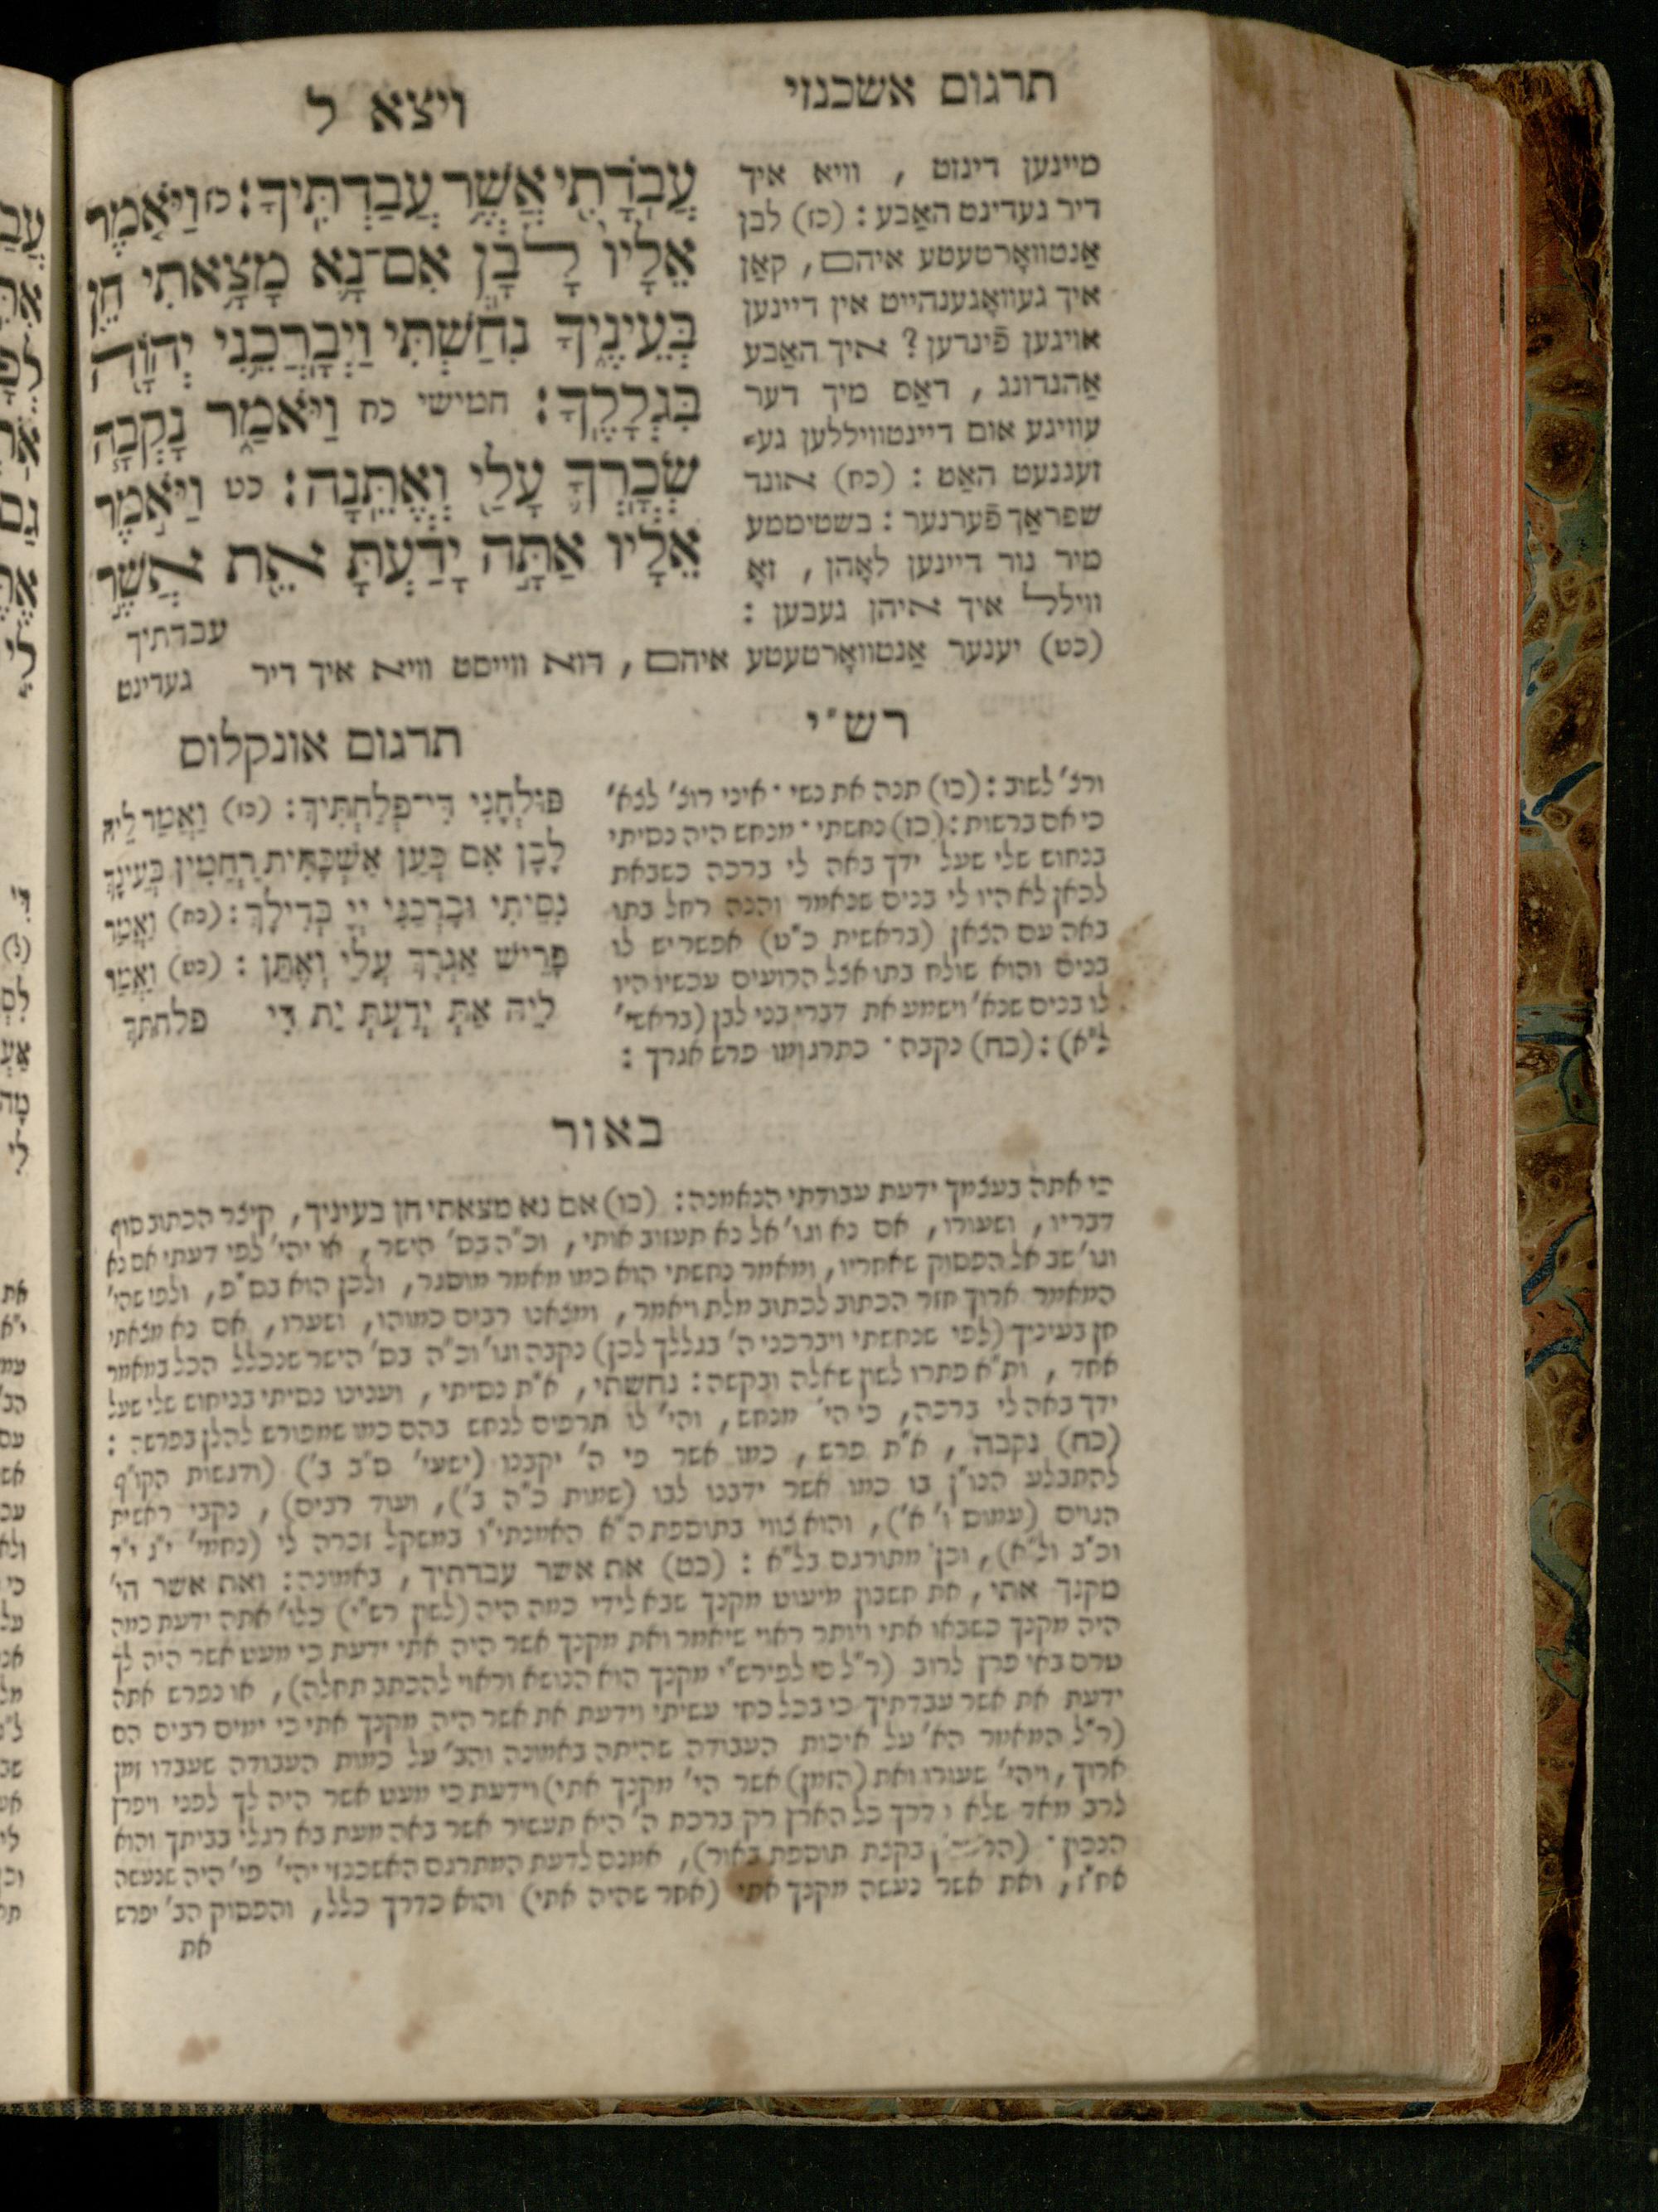 תרגום אשכנזי
ויצא ל
עֲבֹדָתִי אֲשֶׁר עֲבַדְתִּיךָ: כז וַיֹּאמֶר
אֵלָיו לָבָן אִם־נָא מָצָאתִי חֵן
בְּעֵינֶיךָ נִחַשְׁתִּי וַיְבָרֲכֵנִי יְהוָה
בִּגְלָלֶךָ: חמישי כח וַיֹּאמַר נָקְבָה
שְׂכָרְךָ עָלַי וְאֶתֵּנָה: כט וַיֹּאמֶר
אֵלָיו אַתָּה יָדַעְתָּ אֵת אֲשֶׁר
עבדתיך
מיינען דינזט , וויא איך
דיר געדינט האַבע : (כז) לבן
אַנטוואָרטעטע איהם, קאַן
איך געוואָגענהייט אין דיינען
אויגען פֿינדען? איך האַבע
אַהנדונג , דאַס מיך דער
עוויגע אום דיינטוויללען גע⸗
זעגנעט האַט : (כח) אונד
שפראַך פֿערנער : בשטיממע
מיר נור דיינען לאָהן , זאָ
ווילל איך איהן געבען :
(כט) יענער אַנטוואָרטעטע איהם, דוא ווייסט וויא איך דיר
געדינט
רש"י
ורצ' לשוב: (כו) תנה את נשי · איני רוצ' לצא'
כי אם ברשות: (כז) נחשתי · מנחש היה נסיתי
בנחוש שלי שעל ידך באה לי ברכה כשבאת
לכאן לא היו לי בנים שנאמר והנה רחל בתו
באה עם הצאן (בראשית כ"ט) אפשר יש לו
בנים והוא שולח בתו אצל הרועים עכשיו היו
לו בנים שנא' וישמע את דברי בני לבן (בראשי'
ל"א): (כח) נקבה · כתרגומו פרש אגרך :
תרגום אונקלוס
פּוּלְחָנִי דִּי־פְלַחְתִּיךְ: (כז) וַאֲמַר לֵיהּ
לָבָן אִם כְּעַן אַשְׁכָּחִית רַחֲמִין בְּעֵינָךְ
נַסֵּיתִי וּבָרְכַנִּי יְיָ בְּדִילָךְ: (כח) וַאֲמַר
פָּרֵישׁ אַגְרָךְ עֲלַי וְאֶתֵּן : (כט) וַאֲמַר
לֵיהּ אַתְּ יְדַעְתְּ יַת דִּי
פלחתך
באור
הי אתה בעצמך ידעת עבודתי הנאמנה: (כז) אם נא מצאתי חן בעיניך, קיצר הכתוב סוף
דבריו, ושעורו, אם נא וגו' אל נא תעזוב אותי, וכ"ה בס' הישר, או יהי' לפי דעתי אם נא
וגו' שב אל הפסוק שאחריו, ומאמר נחשתי הוא כמו מאמר מוסגר, ולכן הוא בס"פ, ולפי שהי'
המאמר ארוך חזר הכתוב לכתוב מלת ויאמר, ומצאנו רבים כמוהו, ושערו, אם נא מצאתי
חן בעיניך (לפי שנחשתי ויברכני ה' בגללך לכן) נקבה וגו' וכ"ה בס' הישר שנכלל הכל במאמר
אחד , ות"א פתרו לשון שאלה ובקשה: נחשתי, א"ת נסיתי, ועניינו נסיתי בניחוש שלי שעל
ידך באה לי ברכה, כי הי' מנחש, והי' לו תרפים לנחש בהם כמו שמפורש להלן בפרשה :
(כח) נקבה , א"ת פרש, כמו אשר פי ה' יקבנו (ישעי' ס"ב ב') (ודגשות הקו"ף
להתבלע הנו"ן בו כמו אשר ידבנו לבו (שמות כ"ה ב'), ועוד רבים), נקבי ראשית
הגוים (עמוס ו' א'), והוא צווי בתוספת ה"א האמנתי"ו במשקל זכרה לי (נחמי' י"ג י"ד
וכ"ב ול"א), וכן מתורגם בל"א : (כט) את אשר עבדתיך, באמונה: ואת אשר הי'
מקנך אתי, את חשבון מיעוט מקנך שבא לידי כמה היה (לשון רש"י) כלו' אתה ידעת כמה
היה מקנך כשבאו אתי ויותר ראוי שיאמר ואת מקנך אשר היה אתי ידעת כי מעט אשר היה לך
טרם באי פרץ לרוב (ר"ל כי לפירש"י מקנך הוא הנושא וראוי להכתב תחלה), או נפרש אתה
ידעת את אשר עבדתיך כי בכל כחי עשיתי וידעת את אשר היה מקנך אתי כי ימים רבים הם
(ר"ל המאמר הא' על איכות העבודה שהיתה באמונה והב' על כמות העבודה שעבדו זמן
ארוך, ויהי' שעורו ואת (הזמן) אשר הי' מקנך אתי) וידעת כי מעט אשר היה לך לפני ויפרץ
לרב מאד שלא דרך כל הארץ רק ברכת ה' היא תעשיר אשר באה מעת בא רגלי בביתך והוא
הנכון · בקנת תוספת באור), אמנם לדעת המתרגם האשכנזי יהי' פי' היה שנעשה
אח"ז, ואת אשר נעשה מקנך אתי (אחר שהיה אתי) והוא כדרך כלל, והפסוק הב' יפרש
את